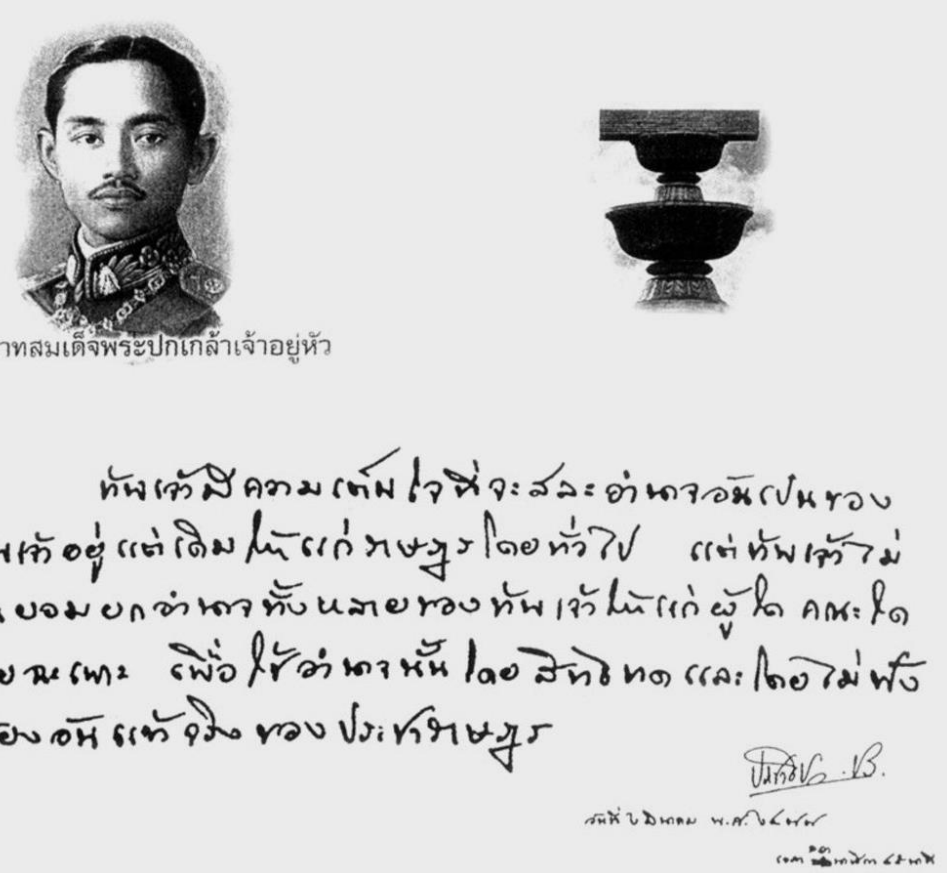 าทสมเด็จพระปกเกล้าเจ้าอยู่หัว
ข้าพเจ้ามีความเต็มใจที่จะสละอำนาจอันเป็นของ
เจ้าอยู่แต่เดิมให้แก่ราษฎรโดยทั่วไป แต่ข้าพเจ้าไม่
ยอมยกอำนาจทั้งหลายของข้าพเจ้าให้แก่ผู้ใด คณะใด
ยฉะเพาะ เพื่อใช้อำนาจนั้นโดยสิทธิขาดและโดยไม่ฟัง
ยงอันแท้จริงของประชาราษฎร
ประชาธิปก ปร.
วันที่ ๒ มีนาคม พ.ศ. ๒๔๗๗
เวลา นาฬิกา ๔๕ นาที